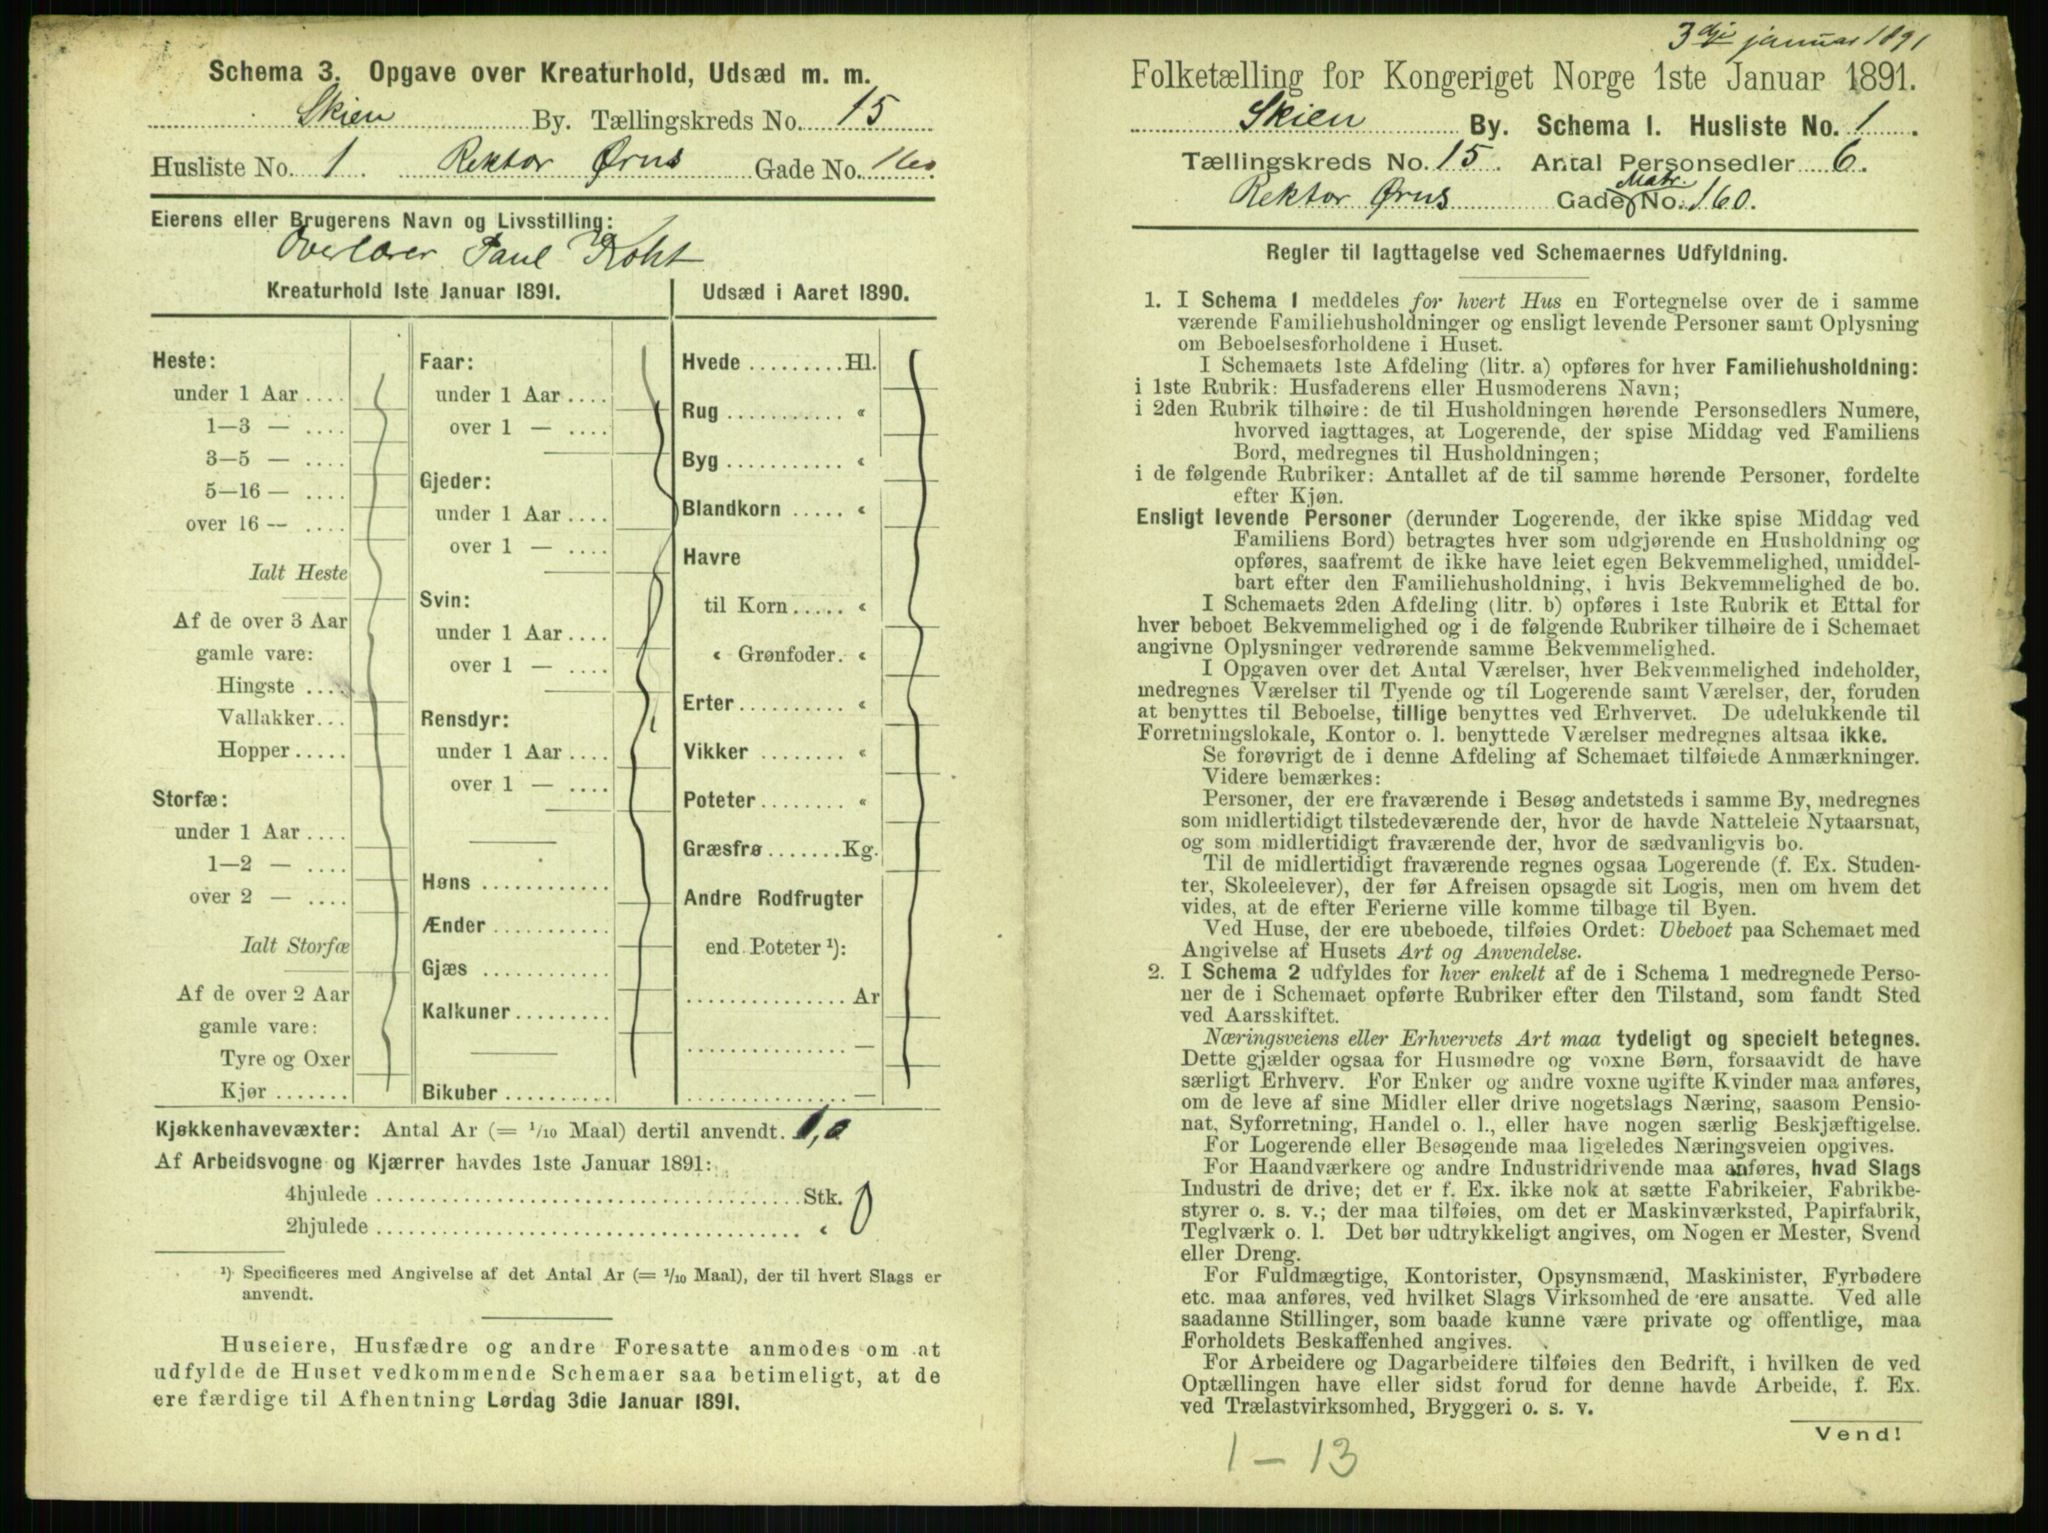 Schema 3. Opgave over Kreaturhold, Udsæd m. m.
Skien By. Tællingskreds No. 15
Husliste No. 1 Rektor Ørns Gade No. 160.
Eierens eller Brugerens Navn og Livsstilling:
Overlærer Paul Koht
Kreaturhold 1ste Januar 1891.
Heste:
under 1 Aar ....
1—3 — ....
3—5 — ....
5—16 — ....
over 16 — ....
Ialt Heste
Af de over 3 Aar
gamle vare:
Hingste ....
Vallakker...
Hopper.....
Storfæ:
under 1 Aar ....
1—2 — ....
over 2 — ....
Ialt Storfæ
Af de over 2 Aar
gamle vare:
Tyre og Oxer
Kjør .......
Faar:
under 1 Aar ....
over 1 — ....
Gjeder:
under 1 Aar ....
over 1 — ....
Svin:
under 1 Aar ....
over 1 — ....
Rensdyr:
under 1 Aar ....
over 1 — ....
Høns ............
Ænder ...........
Gjæs ............
Kalkuner.........
Bikuber ..........
Udsæd i Aaret 1890.
Hvede .........Hl.
Rug ........... «
Byg ........... «
Blandkorn ..... «
Havre
til Korn..... «
« Grønfoder. «
Erter .......... «
Vikker ........ «
Poteter........ «
Græsfrø .......Kg.
Andre Rodfrugter
end Poteter ¹):
............... Ar
............... —
............... —
Kjøkkenhavevæxter: Antal Ar (= 1/10 Maal) dertil anvendt. 1,0
Af Arbeidsvogne og Kjærrer havdes 1ste Januar 1891:
4hjulede ........................................ Stk. 0
2hjulede ........................................ «
¹) Specificeres med Angivelse af det Antal Ar (= 1/10 Maal), der til hvert Slags er
anvendt.
Huseiere, Husfædre og andre Foresatte anmodes om at
udfylde de Huset vedkommende Schemaer saa betimeligt, at de
ere færdige til Afhentning Lørdag 3die Januar 1891.
3die januar 1891
Folketælling for Kongeriget Norge 1ste Januar 1891.
Skien By. Schema 1. Husliste No. 1.
Tællingskreds No. 15. Antal Personsedler 6.
Matr.
Rektor Ørns Gade No. 160.
Regler til Iagttagelse ved Schemaernes Udfyldning.
1. I Schema 1 meddeles for hvert Hus en Fortegnelse over de i samme
værende Familiehusholdninger og ensligt levende Personer samt Oplysning
om Beboelsesforholdene i Huset.
I Schemaets 1ste Afdeling (litr. a) opføres for hver Familiehusholdning:
i 1ste Rubrik: Husfaderens eller Husmoderens Navn;
i 2den Rubrik tilhøire: de til Husholdningen hørende Personsedlers Numere,
hvorved iagttages, at Logerende, der spise Middag ved Familiens
Bord, medregnes til Husholdningen;
i de følgende Rubriker: Antallet af de til samme hørende Personer, fordelte
efter Kjøn.
Ensligt levende Personer (derunder Logerende, der ikke spise Middag ved
Familiens Bord) betragtes hver som udgjørende en Husholdning og
opføres, saafremt de ikke have leiet egen Bekvemmelighed, umiddel-
bart efter den Familiehusholdning, i hvis Bekvemmelighed de bo.
I Schemaets 2den Afdeling (litr. b) opføres i 1ste Rubrik et Ettal for
hver beboet Bekvemmelighed og i de følgende Rubriker tilhøire de i Schemaet
angivne Oplysninger vedrørende samme Bekvemmelighed.
I Opgaven over det Antal Værelser, hver Bekvemmelighed indeholder,
medregnes Værelser til Tyende og til Logerende samt Værelser, der, foruden
at benyttes til Beboelse, tillige benyttes ved Erhvervet. De udelukkende til
Forretningslokale, Kontor o. l. benyttede Værelser medregnes altsaa ikke.
Se forøvrigt de i denne Afdeling af Schemaet tilføiede Anmærkninger.
Videre bemærkes:
Personer, der ere fraværende i Besøg andetsteds i samme By, medregnes
som midlertidigt tilstedeværende der, hvor de havde Natteleie Nytaarsnat,
og som midlertidigt fraværende der, hvor de sædvanligvis bo.
Til de midlertidigt fraværende regnes ogsaa Logerende (f. Ex. Studen-
ter, Skoleelever), der før Afreisen opsagde sit Logis, men om hvem det
vides, at de efter Ferierne ville komme tilbage til Byen.
Ved Huse, der ere ubeboede, tilføies Ordet: Ubeboet paa Schemaet med
Angivelse af Husets Art og Anvendelse.
2. I Schema 2 udfyldes for hver enkelt af de i Schema 1 medregnede Perso-
ner de i Schemaet opførte Rubriker efter den Tilstand, som fandt Sted
ved Aarsskiftet.
Næringsveiens eller Erhvervets Art maa tydeligt og specielt betegnes.
Dette gjælder ogsaa for Husmødre og voxne Børn, forsaavidt de have
særligt Erhverv. For Enker og andre voxne ugifte Kvinder maa anføres,
om de leve af sine Midler eller drive nogetslags Næring, saasom Pensio-
nat, Syforretning, Handel o. l., eller have nogen særlig Beskjæftigelse.
For Logerende eller Besøgende maa ligeledes Næringsveien opgives.
For Haandværkere og andre Industridrivende maa anføres, hvad Slags
Industri de drive; det er f. Ex. ikke nok at sætte Fabrikeier, Fabrikbe-
styrer o. s. v.; der maa tilføies, om det er Maskinværksted, Papirfabrik,
Teglværk o. l. Det bør udtrykkeligt angives, om Nogen er Mester, Svend
eller Dreng.
For Fuldmægtige, Kontorister, Opsynsmænd, Maskinister, Fyrbødere
etc. maa anføres, ved hvilket Slags Virksomhed de ere ansatte. Ved alle
saadanne Stillinger, som baade kunne være private og offentlige, maa
Forholdets Beskaffenhed angives.
For Arbeidere og Dagarbeidere tilføies den Bedrift, i hvilken de ved
Optællingen have eller sidst forud for denne havde Arbeide, f. Ex.
ved Trælastvirksomhed, Bryggeri o. s. v.
Vend!
1 – 13